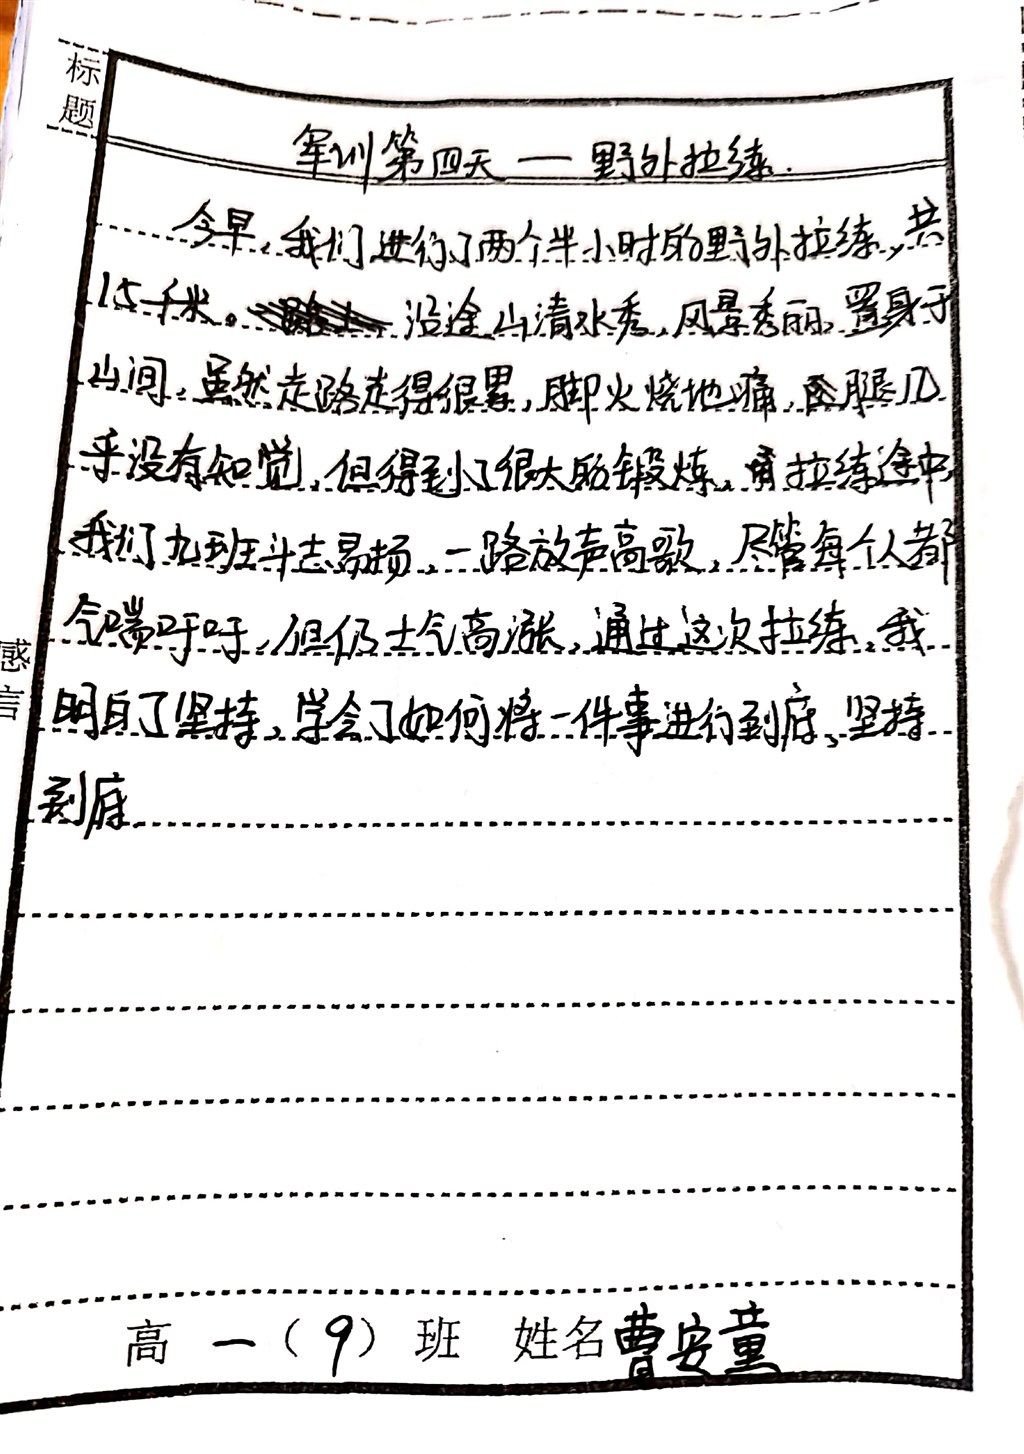 标题
军训第四天——野外拉练.
今早,我们进行了两个半小时的野外拉练,共
15千米。沿途山清水秀,风景秀丽,置身于
山间,虽然走路走得很累,脚火烧地痛,腿几
乎没有知觉,但得到了很大的锻炼,拉练途中,
我们九班斗志昂扬,一路放声高歌,尽管每个人都
气喘吁吁,但仍士气高涨,通过这次拉练,我
明白了坚持,学会了如何将一件事进行到底,坚持
到底.
感言
高一(9)班 姓名曹安童